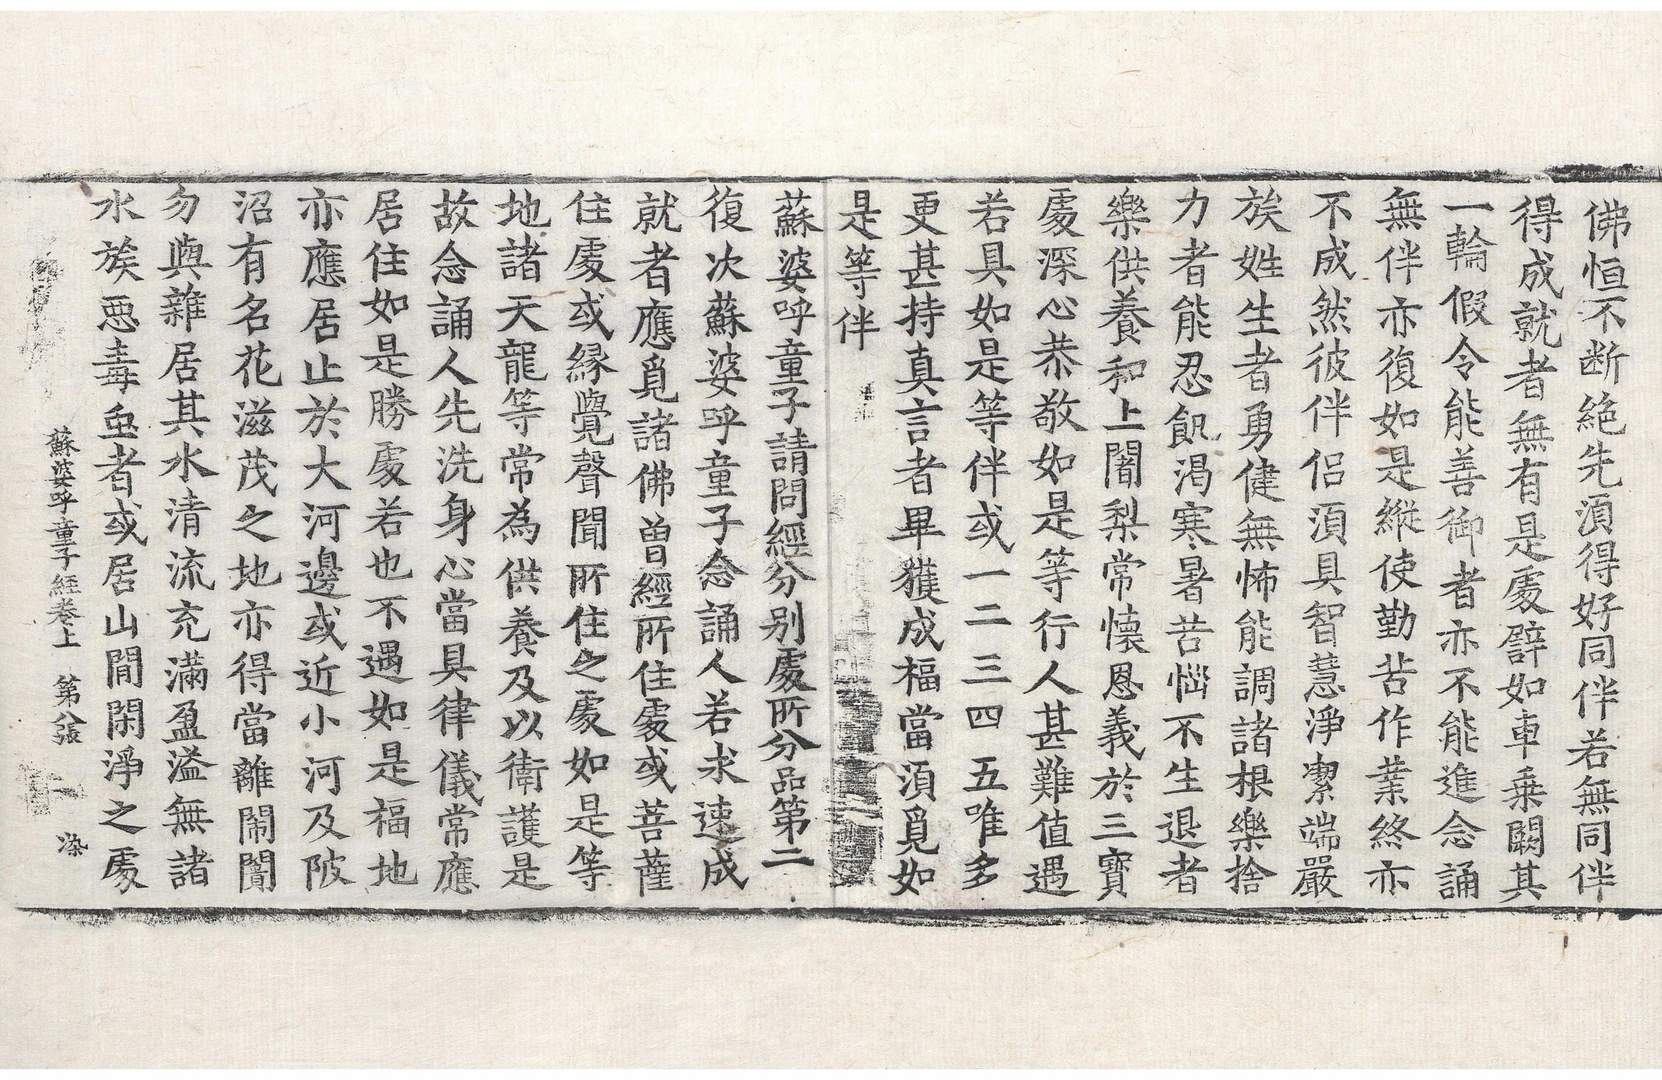 佛恒不断絶先湏得好同伴若無同伴
得成就者無有是處辟如車乗闕其
一輪假令能善御者亦不能進念誦
無伴亦復如是縦使勤苦作業終亦
不成然彼伴侣湏具智慧淨潔端嚴
族姓生者勇健無怖能調諸根樂捨
力者能忍飢渴寒暑苦惱不生退者
樂供養和上闍梨常懐恩義於三寶
處深心恭敬如是等行人甚難值遇
若具如是等伴或一二三四五唯多
更甚持真言者畢獲成福當湏覓如
是等伴
蘇婆呼童子請問經分别處所分品第二
復次蘇婆呼童子念誦人若求速成
就者應覓諸佛曽經所住處或菩薩
住處或縁覺聲聞所住之處如是等
地諸天龍等常為供養及以衛護是
故念誦人先洗身心當具律儀常應
居住如是勝處若也不遇如是福地
亦應居止於大河邊或近小河及陂
沼有名花滋茂之地亦得當離閙閬
勿與雜居其水清流充滿盈溢無諸
水族惡毒虫者或居山間閑淨之處
蘇婆呼童子經巻上 第八張 染